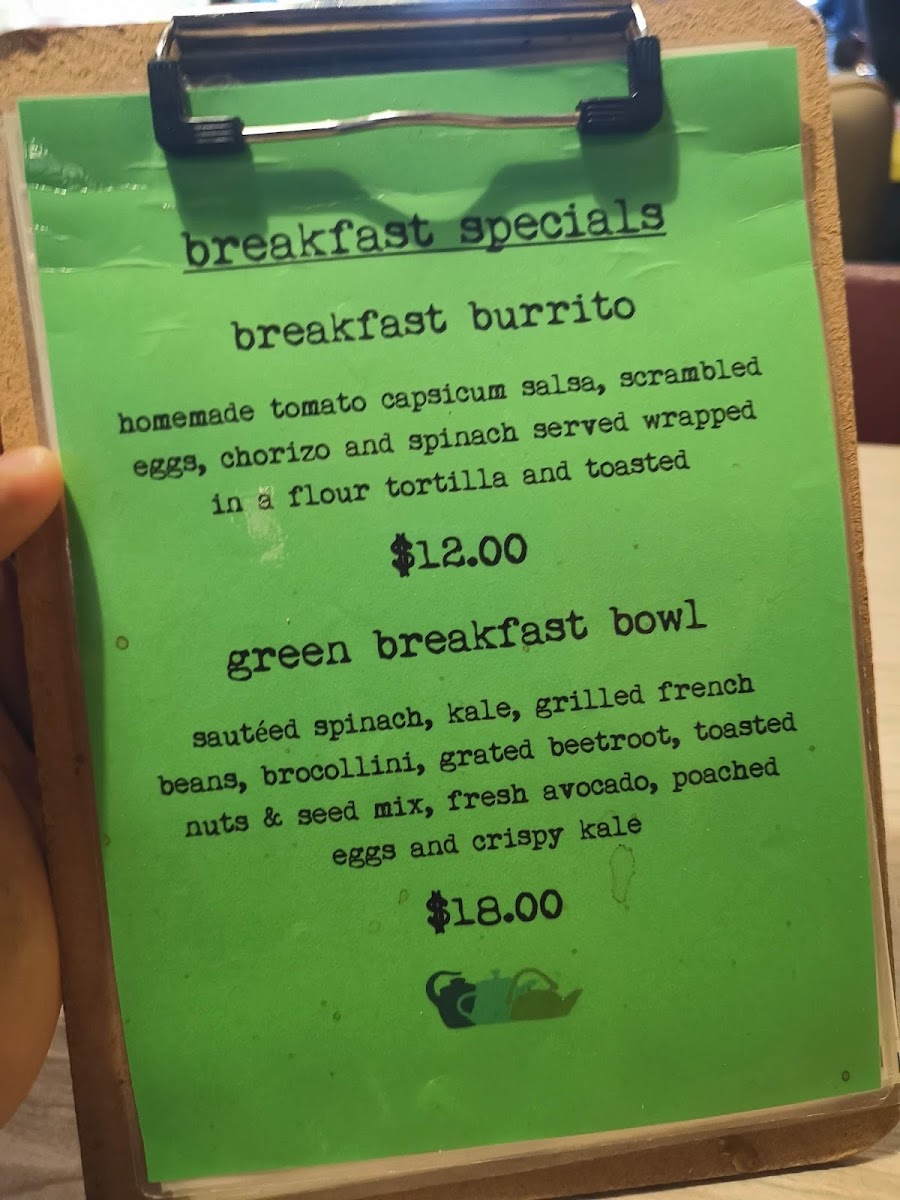 breakfast specials
breakfast burrito
homemade tomato capsicum salsa, scrambled
eggs, chorizo and spinach served wrapped
in a flour tortilla and toasted
$12.00
green breakfast bowl
sautéed spinach, kale, grilled french
beans, brocollini, grated beetroot, toasted
nuts & seed mix, fresh avocado, poached
eggs and crispy kale
$18.00